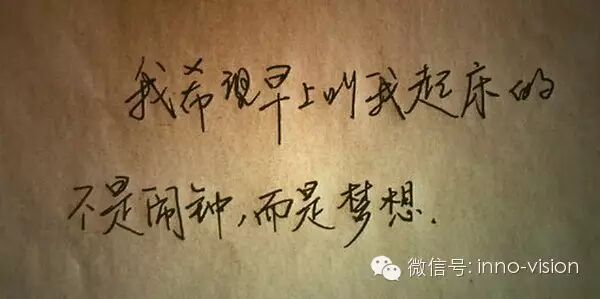 我希望早上叫我起床的
不是闹钟,而是梦想.
微信号: inno-vision